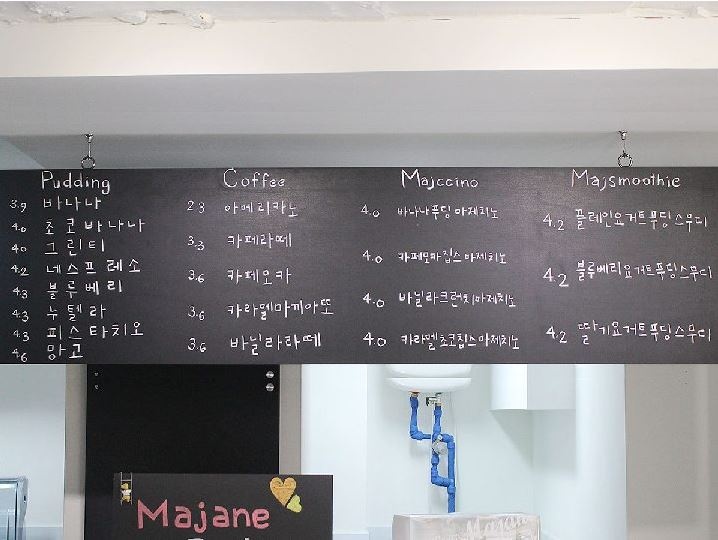 Pudding
3.9 바나나
4.0 초코바나나
4.0 그린티
4.2 네스프레소
4.3 블루베리
4.3 누텔라
4.3 피스타치오
4.6 망고
Coffee
2.3 아메리카노
3.3 카페라떼
3.6 카페모카
3.6 카라멜마끼아또
3.6 바닐라라떼
Majccino
4.0 바나나푸딩마제치노
4.0 카페모카칩스마제치노
4.0 바닐라크런치마제치노
4.0 카라멜초코칩스마제치노
Majsmoothie
4.2 플레인요거트푸딩스무디
4.2 블루베리요거트푸딩스무디
4.2 딸기요거트푸딩스무디
Majane